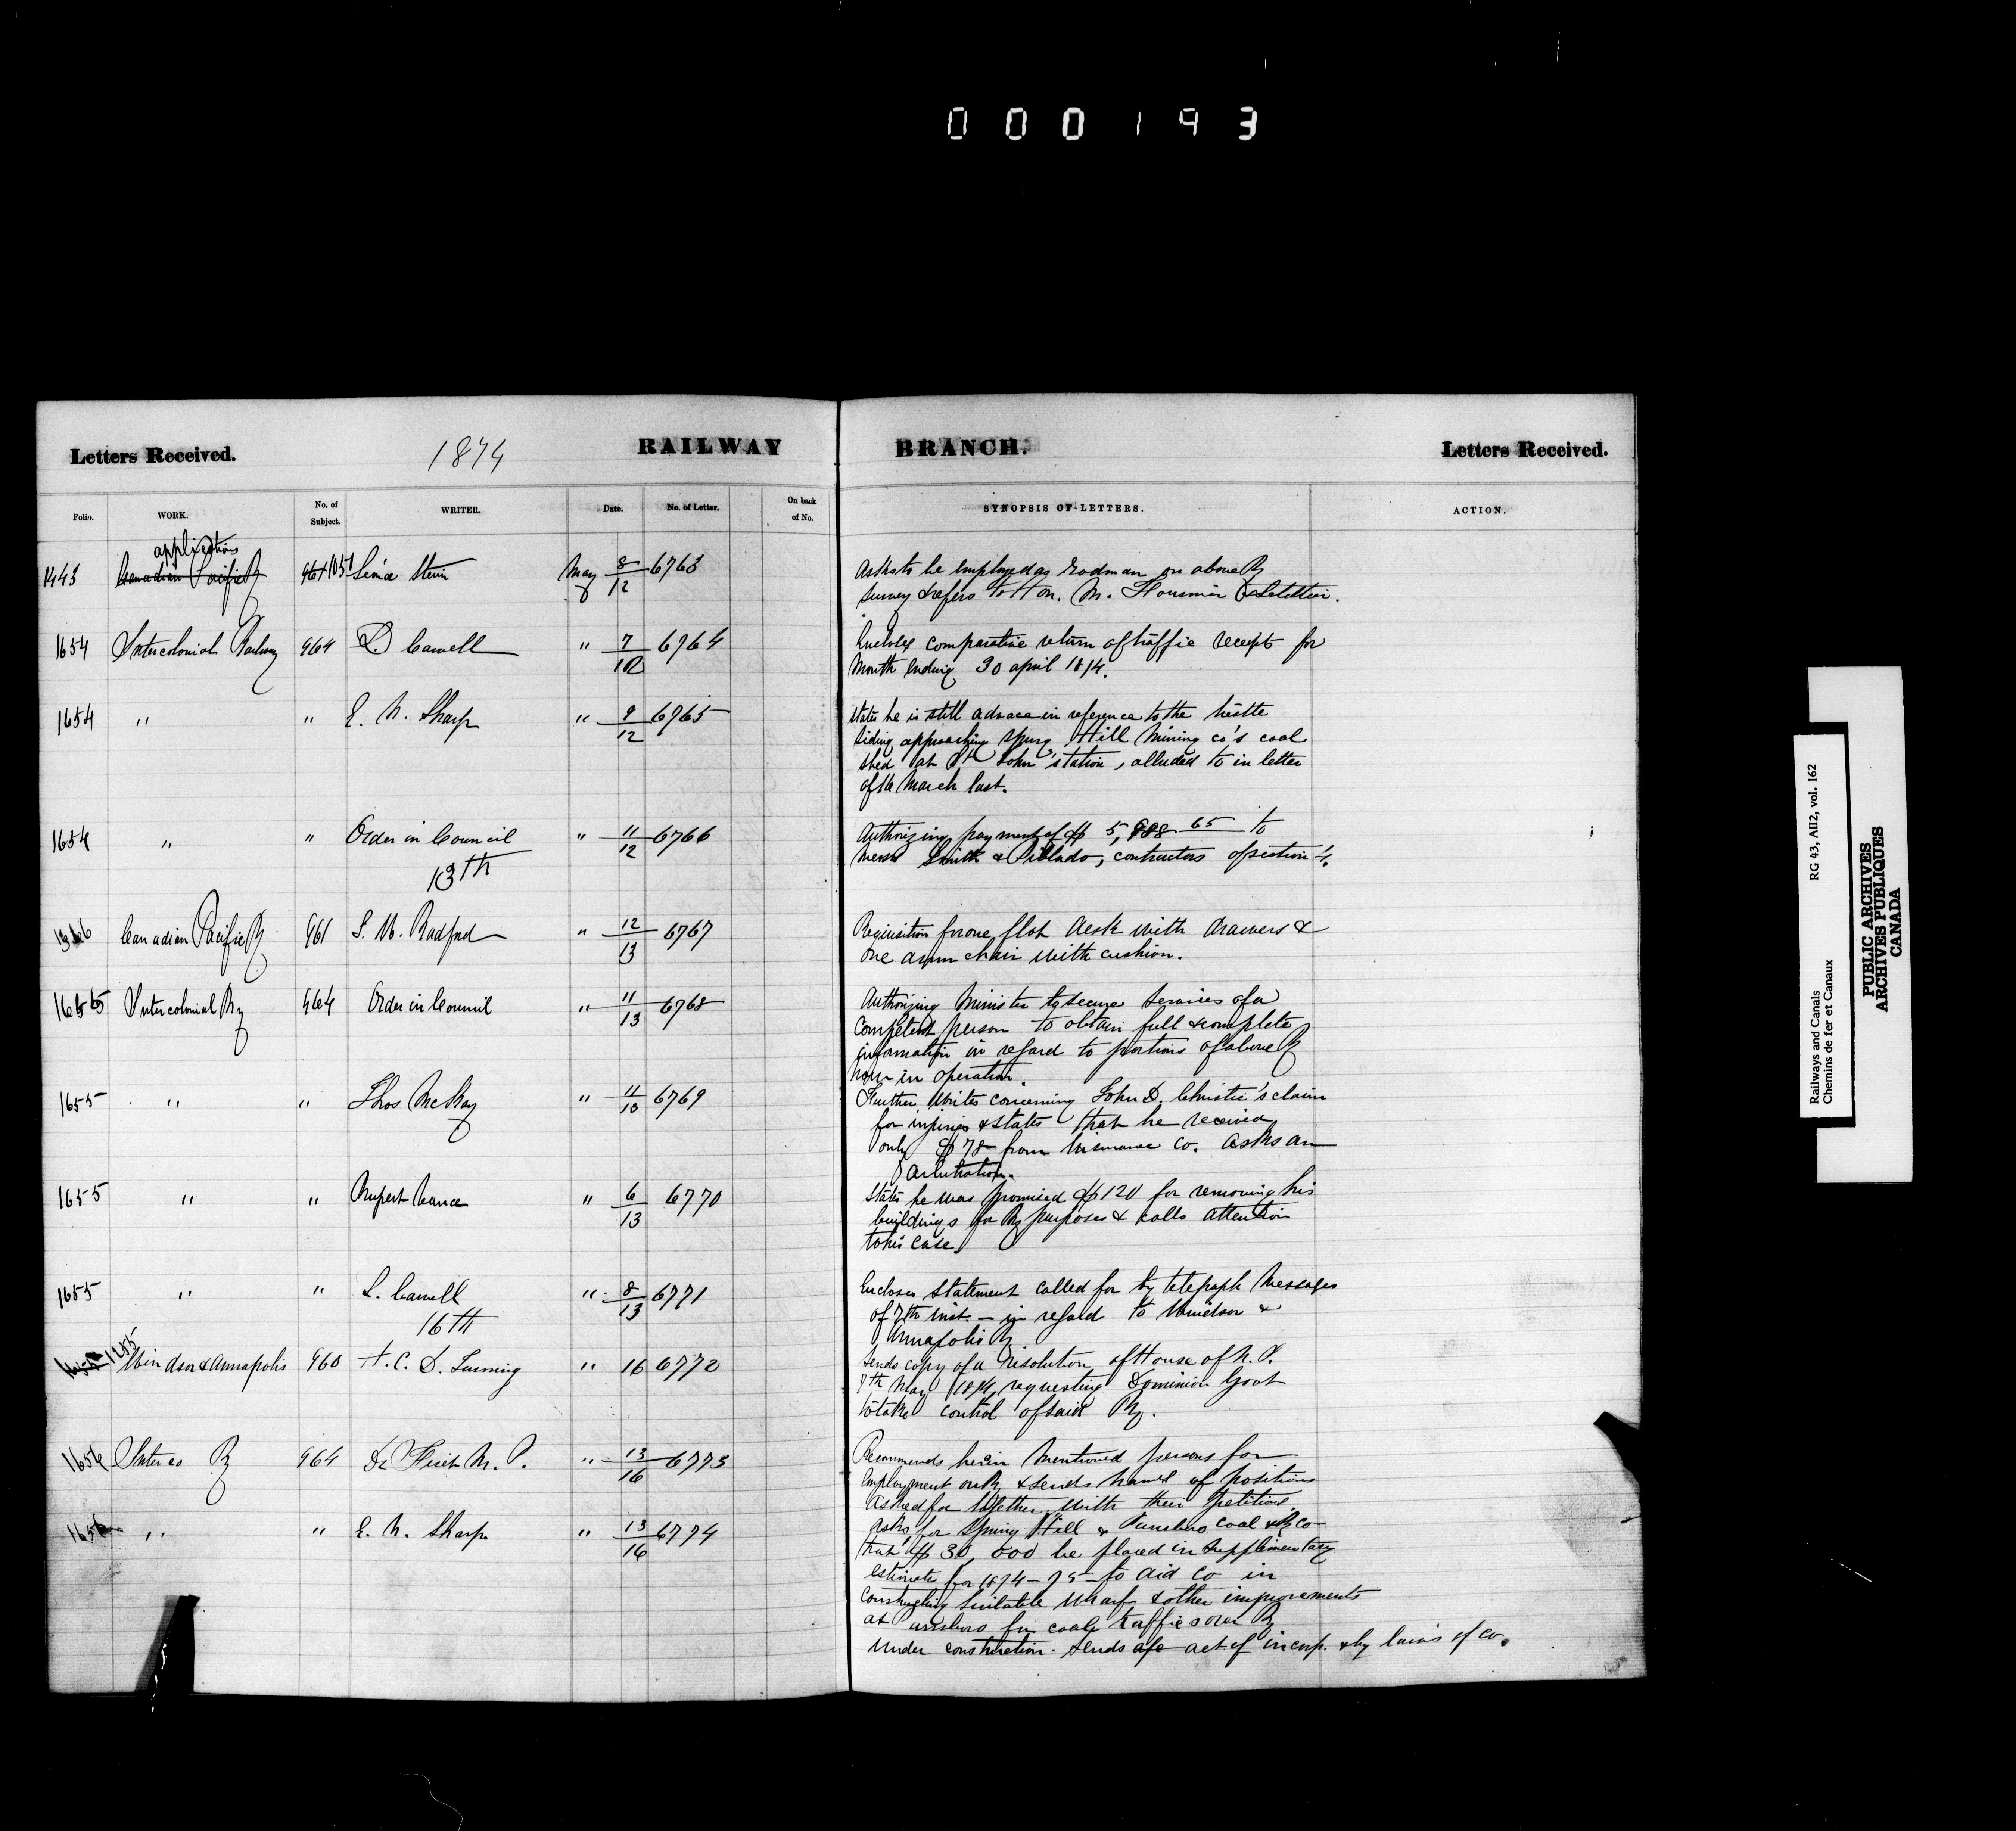 000193
Letters Received. 1874 RAILWAY BRANCH. Letters Received.
Folio. WORK. No. of Subject. WRITER. Date. No. of Letter. On back of No. SYNOPSIS OF LETTERS. ACTION.
applications
1443 Canadian Pacific Ry 961 1051 May 8/12 6763 Asks to be employed as rodman on above Ry
survey & refers to Hon. M.
1654 Intercolonial Railway 964 Carvell " 7/12 6764 Encloses comparative return of traffic receipts for
month ending 30 april 1874.
1654 " " E. N. Sharp " 9/12 6765 states he is still in reference to the
siding approaching Spring Hill Mining co's coal
shed at St John station, alluded to in letter
of 16 March last.
1654 " " Order in Council " 11/12 6766 Authorizing payment of $ 5,988 65 to
Messrs Smith & Pitblado, contractors of section 4.
13th
1346 Canadian Pacific Ry 961 Radford " 12/13 6767 Requisition for one flat desk with drawers &
one arm chair with cushion.
1655 Intercolonial Ry 964 Order in Council " 11/13 6768 Authorizing Minister to secure services of a
competent person to obtain full & complete
information in regard to portions of above Ry
now in operation.
1655 " " Thos McKay " 11/13 6769 Further writes concerning John D. Christie's claim
for injuries & states that he received
only $78 from Insurance co. asks an
arbitration.
1655 " " Rupert " 6/13 6770 States he was promised $120 for removing his
buildings for Ry purposes & calls attention
to his case.
1655 " " Carvell " 8/13 6771 Encloses statement called for by telegraph messages
of 7th inst. – in regard to Windsor &
Annapolis Ry.
16th
1255 Windsor & Annapolis 960 H. C. D. Twining " 16 6772 Sends copy of a resolution of House of
7th May 1874, requesting Dominion Govt
to take control of said Ry.
1656 Interco Ry 964 De M. P. " 13/16 6773 Recommends herein mentioned persons for
employment on Ry & sends names of positions
asked for together with their petitions.
1656 " " E. N. Sharp " 13/16 6774 Asks for Spring Hill & Parrsboro coal & Ry co
that $30,000 be placed in supplementary
estimate for 1874–75 to aid Co in
constructing suitable wharf & other improvements
at for coal traffic over Ry
under construction. Sends also act of incorp. & by laws of co.
RG 43, AII2, vol. 162
Railways and Canals
Chemins de fer et Canaux
PUBLIC ARCHIVES
ARCHIVES PUBLIQUES
CANADA